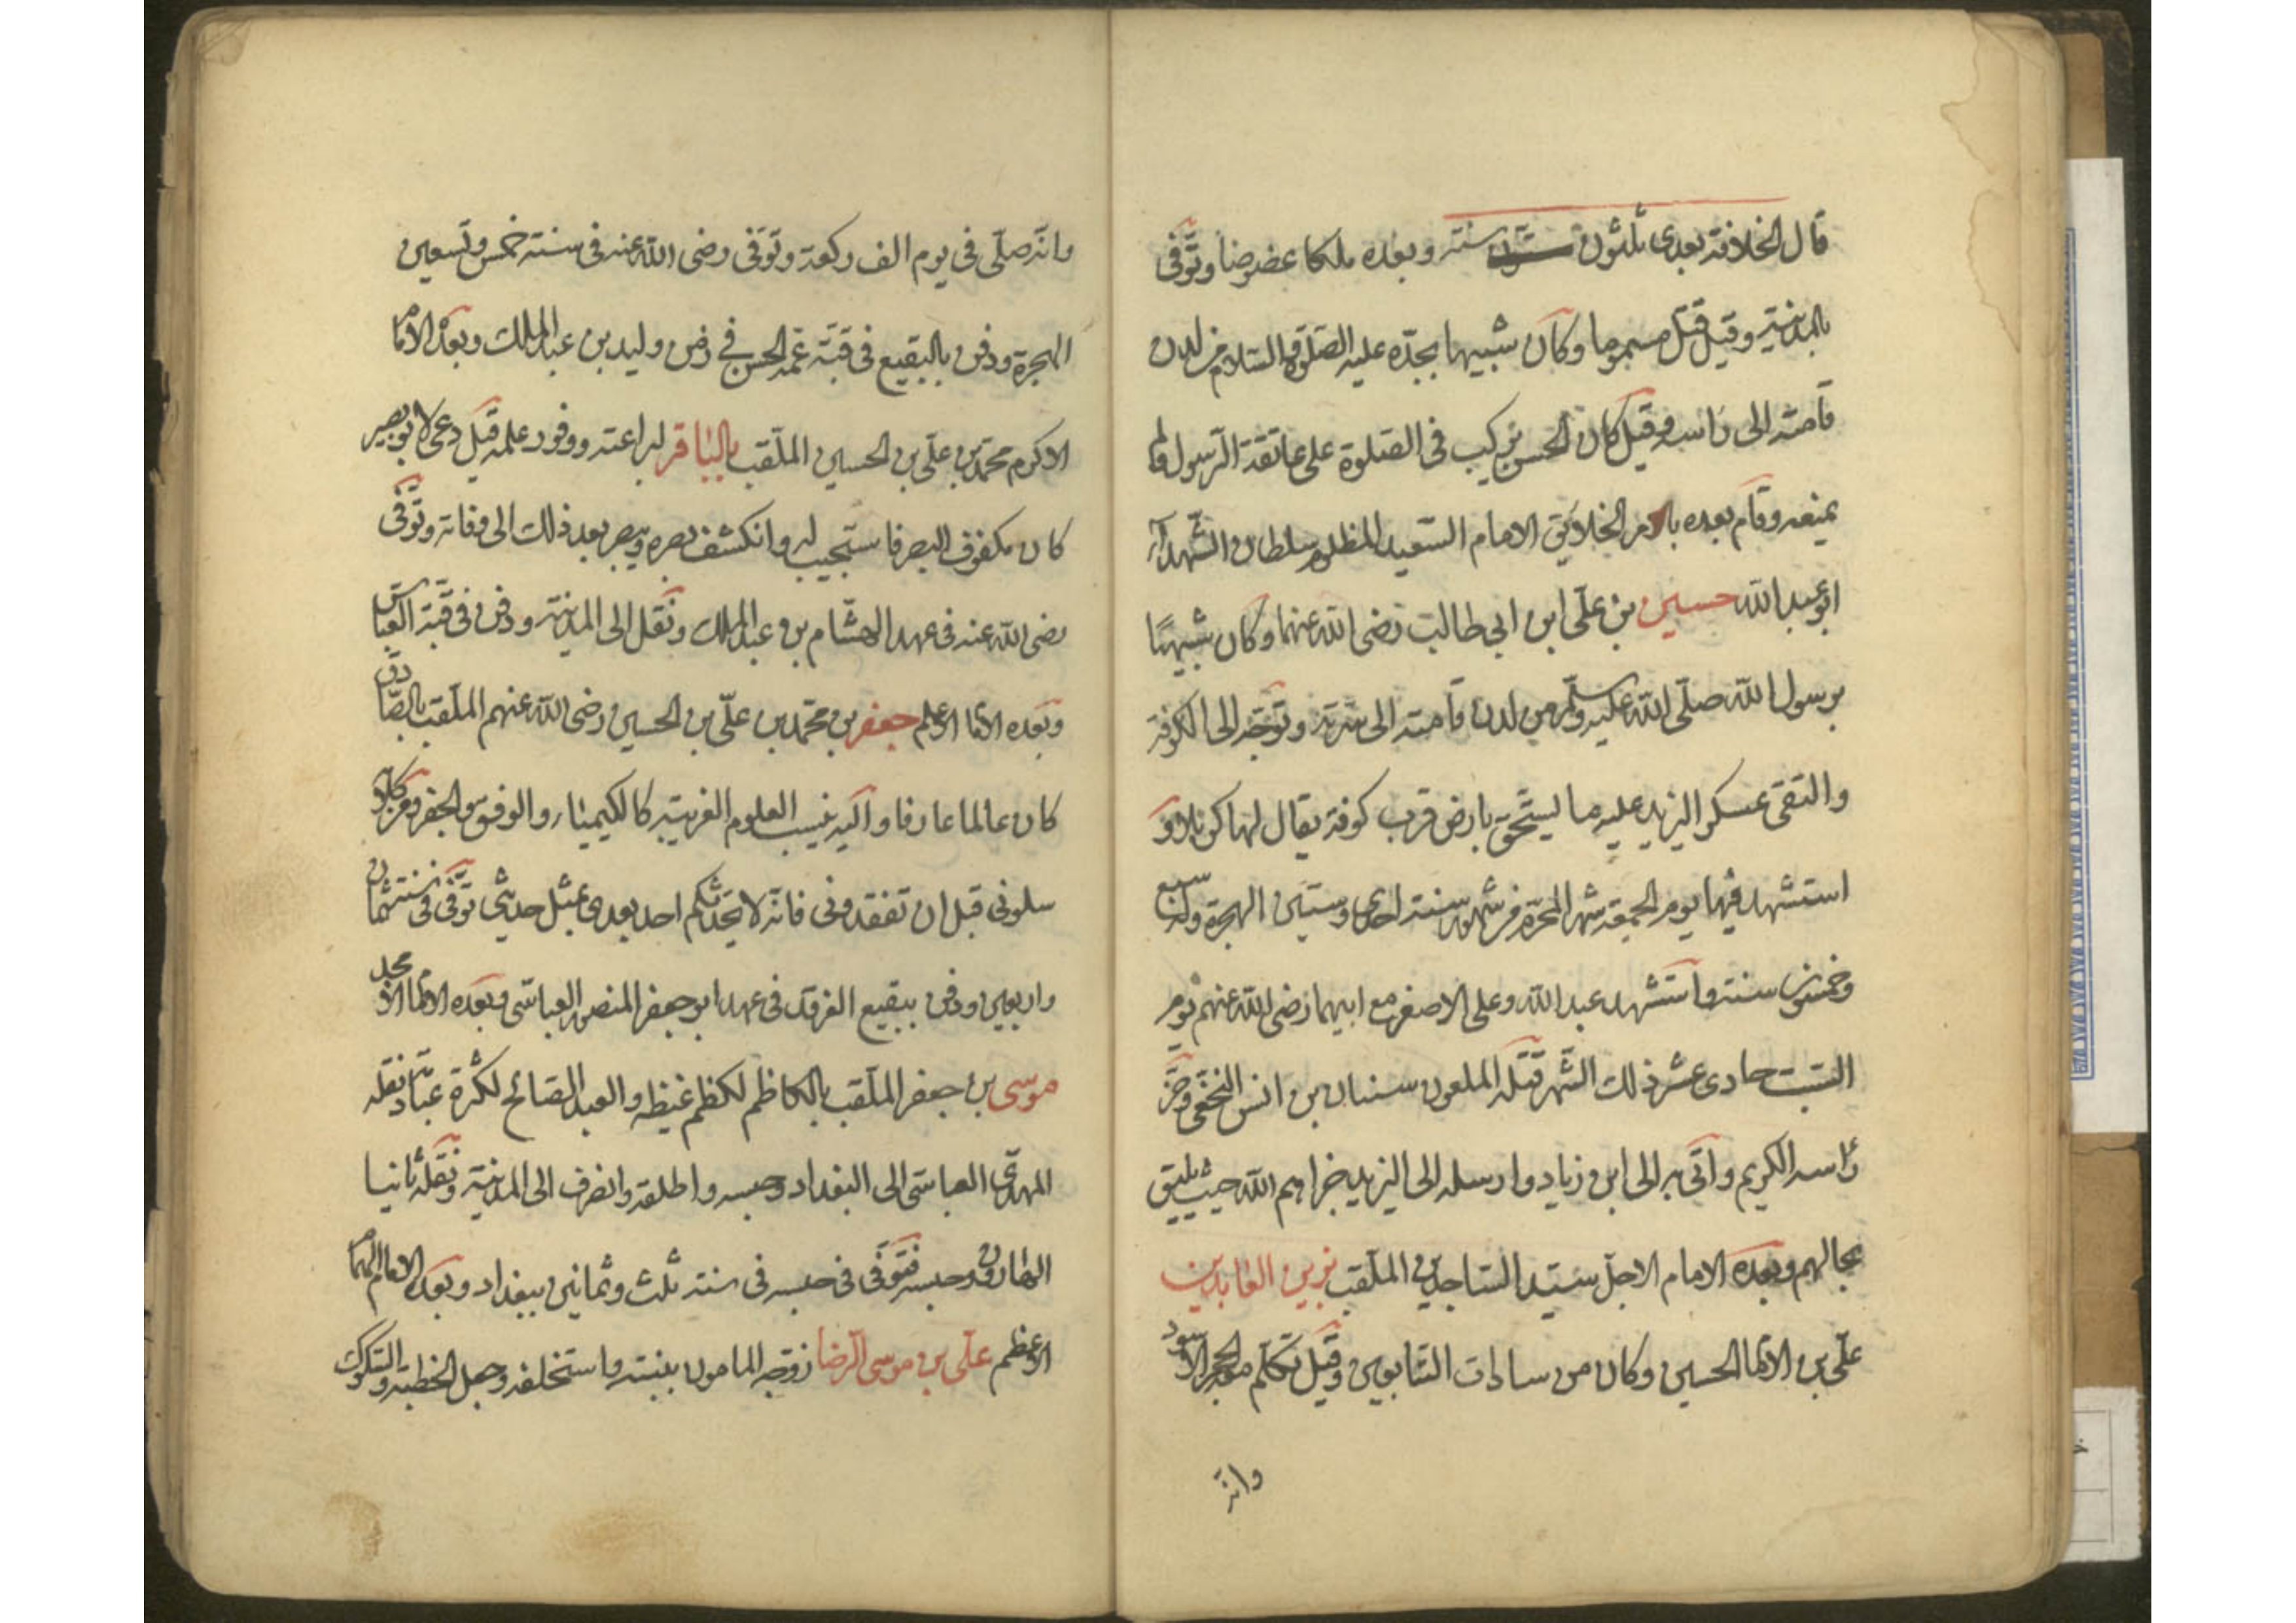 قال الخلافة بعدى ثلثون سنة وبعده ملكا عضوضا وتوفى
بالمدينة وقيل قتل مسموما وكان شبيها بجده عليه الصلوة والسلام من لدن
قامته الى راسه وقيل كان الحسن يركب فى الصلوة على عاتقة الرسول ولم
يمنعه وقام بعده بالامر الخلافتى الامام السعيد المظلوم سلطان الشهدآء
ابو عبد الله حسين بن على ابن ابى طالب رضى الله عنهما وكان شبيها
برسول الله صلى الله عليه وسلم من لدن قامته الى سرته وتوجه الى الكوفة
والتقى عسكر اليزيد عليه ما ليستحق بارض قرب كوفة يقال لها كربلا و
استشهد فيها يوم الجمعة شهر المحرم من شهور سنة احدى وستين الهجرة وله سبع
وخمسون سنة واستشهد عبد الله وعلى الاصغر مع ابيهما رضى الله عنهم يوم
السبت حادى عشر ذلك الشهر قتله الملعون سنان بن انس النخعى وحز
راسه الكريم واتى به الى ابن زياد وارسله الى اليزيد خزاهم الله حيث يليق
بحالهم وبعده الامام الاجل سيد الساجدين الملقب بزين العابدين
على بن الامام الحسين وكان من سادات التابعين وقيل تكلم معه الحجر الاسود
وانه
وانه صلى فى يوم الف ركعة وتوفى رضى الله عنه فى سنة خمس وتسعين
الهجرة ودفن بالبقيع فى قبة عمه الحسن فى زمن وليد بن عبد الملك وبعده الامام
الاكرم محمد بن على بن الحسين الملقب بالباقر لبراعته ووفور علمه قيل دعى لابو بصير
كان مكفوف البصر فاستجيب له وانكشف بصره ويبصر بعد ذلك الى وفاته وتوفى
رضى الله عنه فى عهد الهشام بن عبد الملك ونقل الى المدينة ودفن فى قبة العباس
وبعده الامام الاعلم جعفر بن محمد بن على بن الحسين رضى الله عنهم الملقب بالصادق
كان عالما عارفا واليه ينسب العلوم الغريبة كالكيمياء والوفق والجفر ومن كلامه
سلونى قبل ان تفقدونى فانه لا يحدثكم احد بعدى بمثل حديثى توفى فى سنة ثمان
واربعين ودفن ببقيع الغرقد فى عهد ابو جعفر المنصور العباسى وبعده الامام الامجد
موسى بن جعفر الملقب بالكاظم لكظم غيظه والعبد الصالح لكثرة عبادته نقله
المهدى العباسى الى البغداد وحبسه واطلقه وانصرف الى المدينة ونقله ثانيا
الهارون وحبسه فتوفى فى حبسه فى سنة ثلث وثمانين ببغداد وبعده الامام الهمام
الاعظم على بن موسى الرضا زوجه المامون ببنته واستخلفه وجعل الخطبة والسكوك